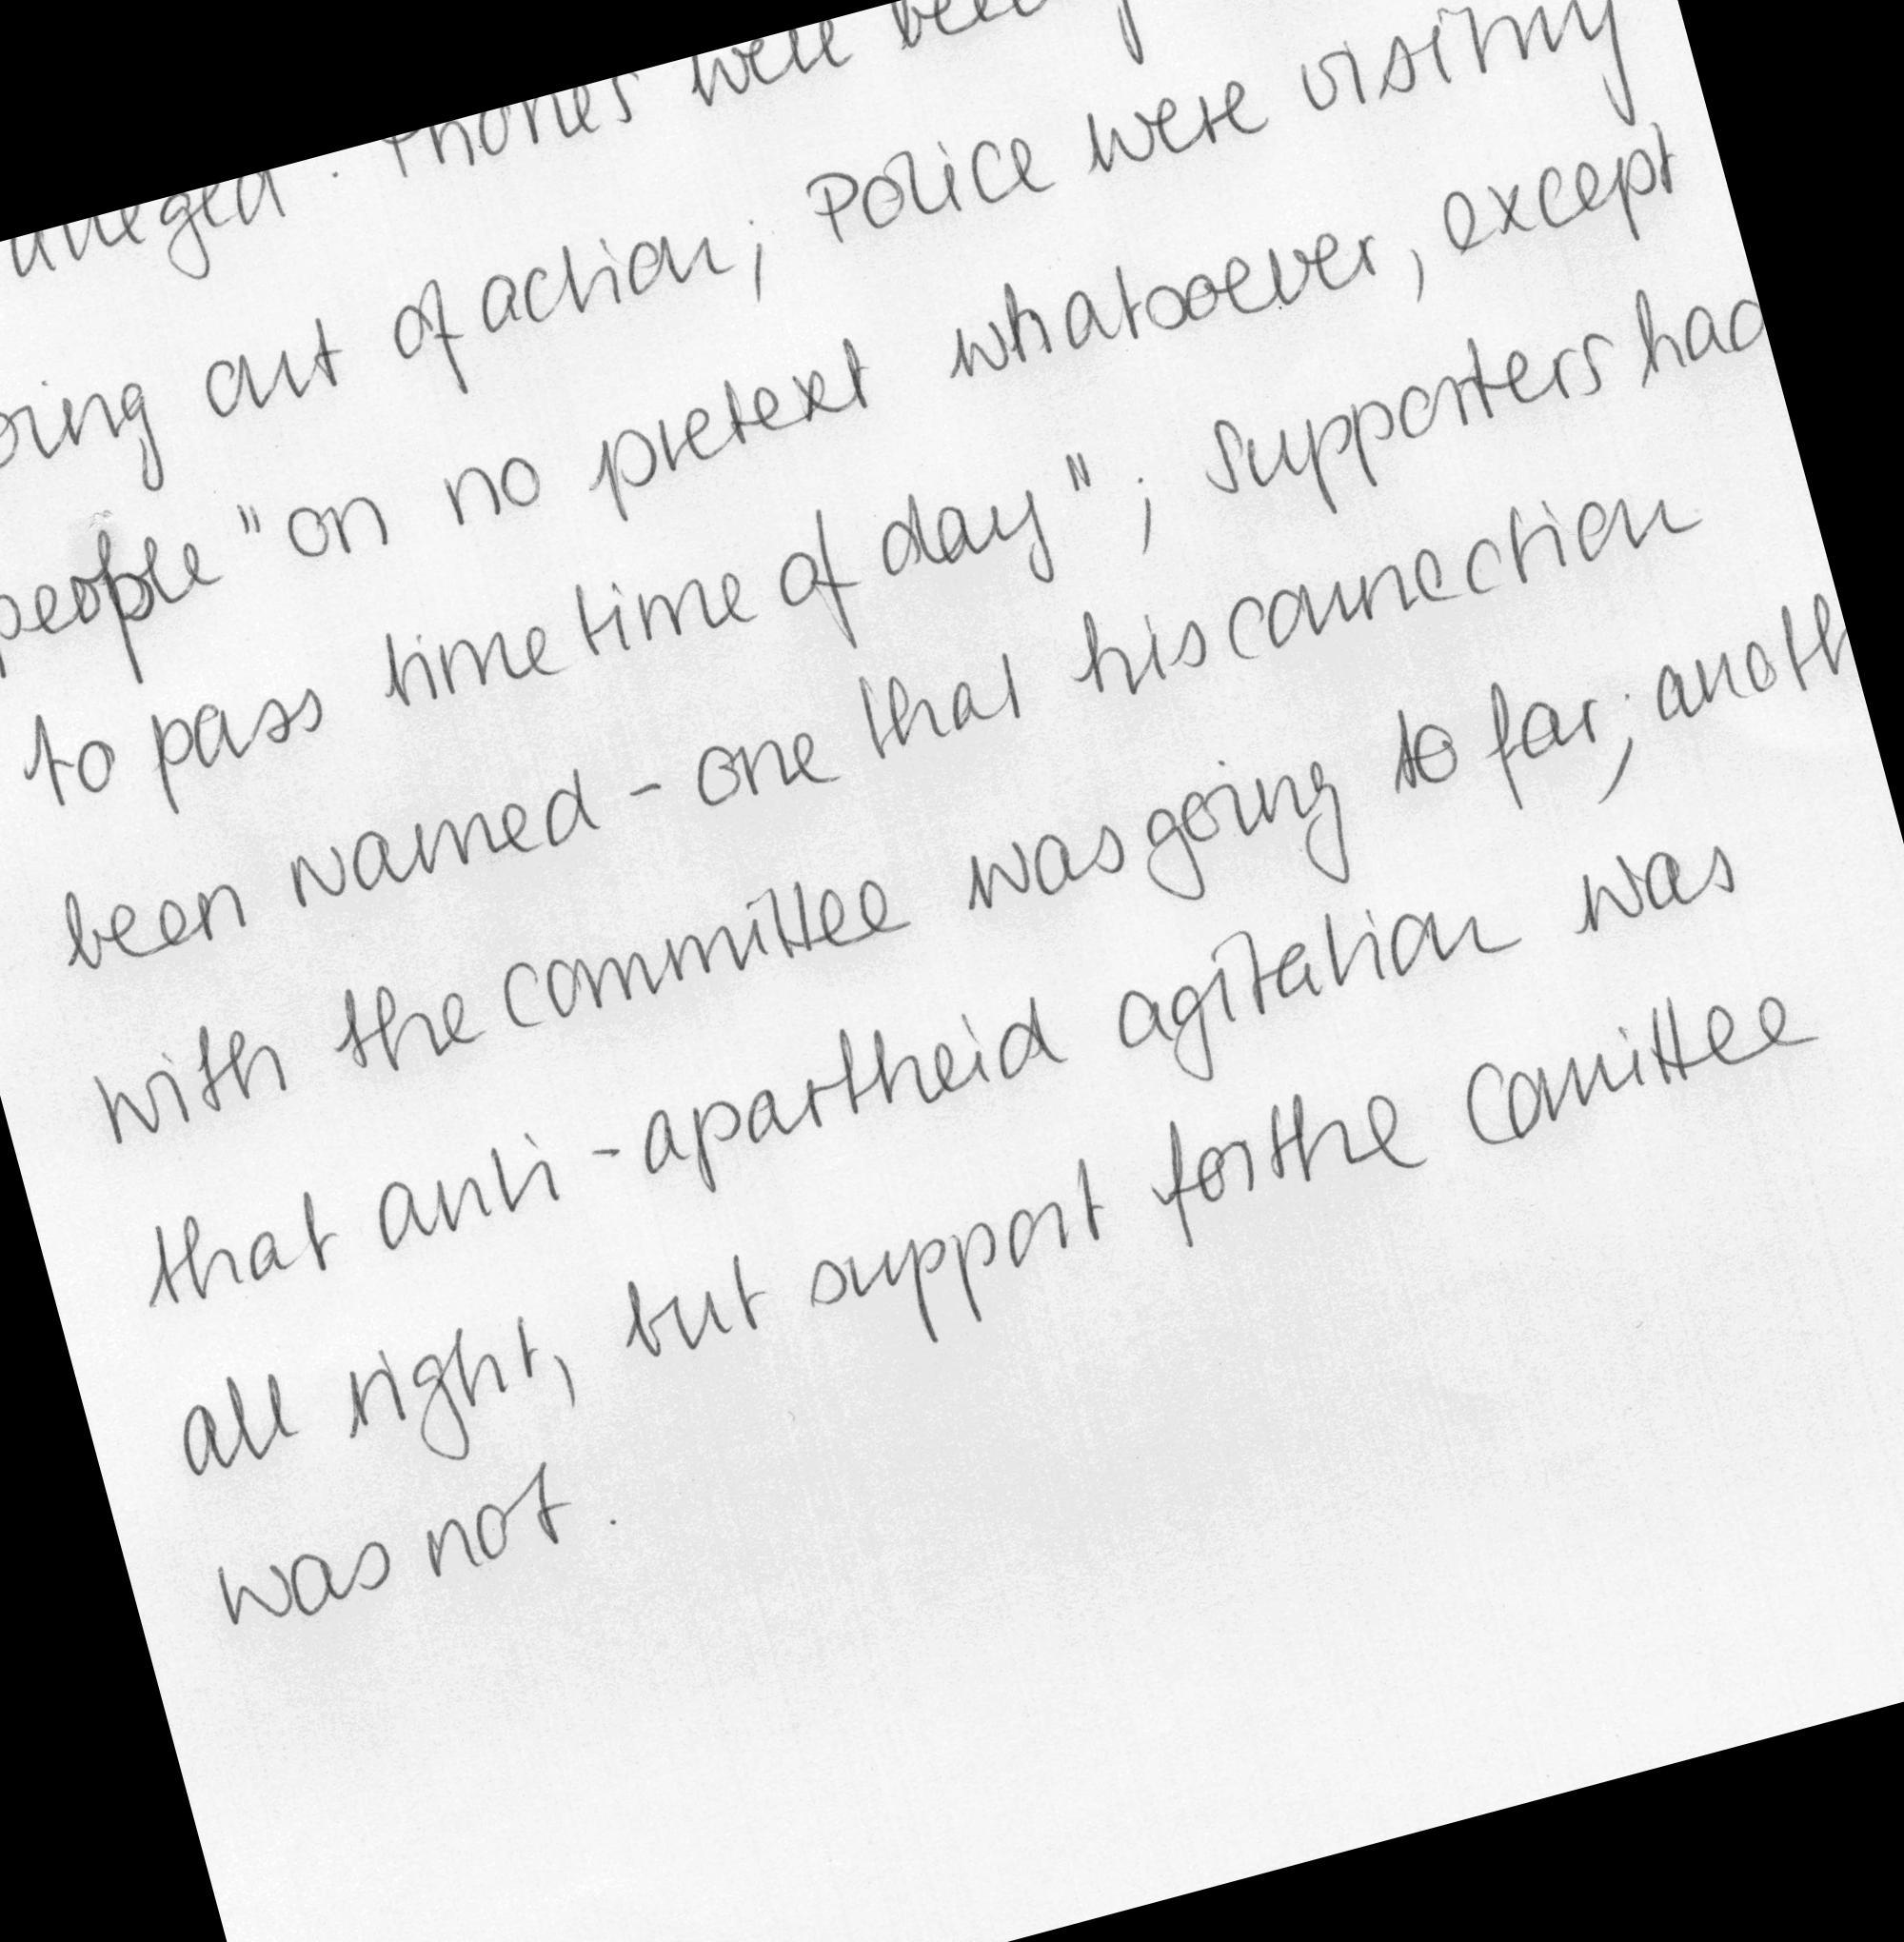 alleged. Phones were
out of action; Police were visiting
people "on no pretext whatsoever, except
to pass time time of day"; supporters had
been warned - one that his connection
with the committee was going to far;
that anti-apartheid agitation was
all right, but support for the Comittee
was not.